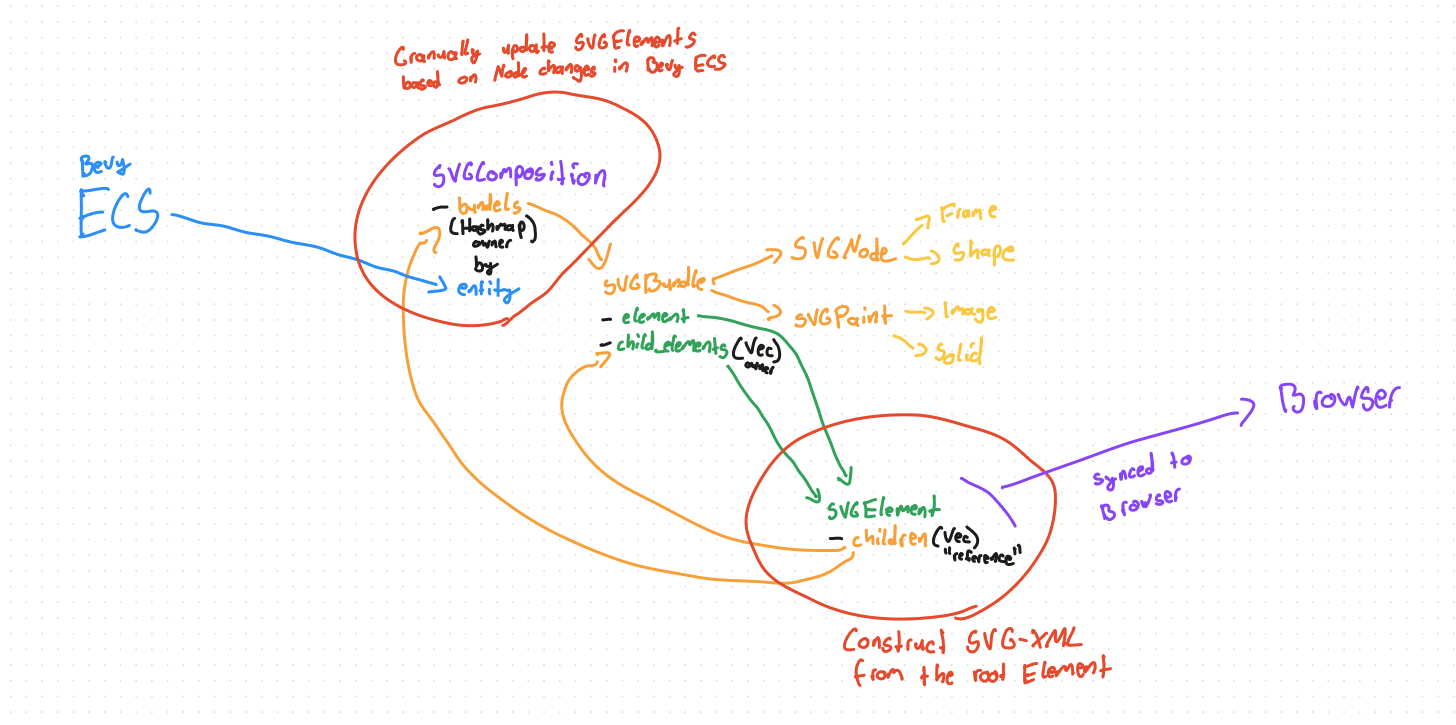 Granually update SVGElements
based on Node changes in Bevy ECS
Bevy
ECS
SVGComposition
- bundels
(Hashmap)
owner
by
entity
SVGBundle
- element
- child_elements (Vec)
owner
SVGNode
Frame
Shape
SVGPaint
Image
Solid
Browser
synced to
Browser
SVGElement
- children (Vec)
"reference"
Construct SVG-XML
from the root Element